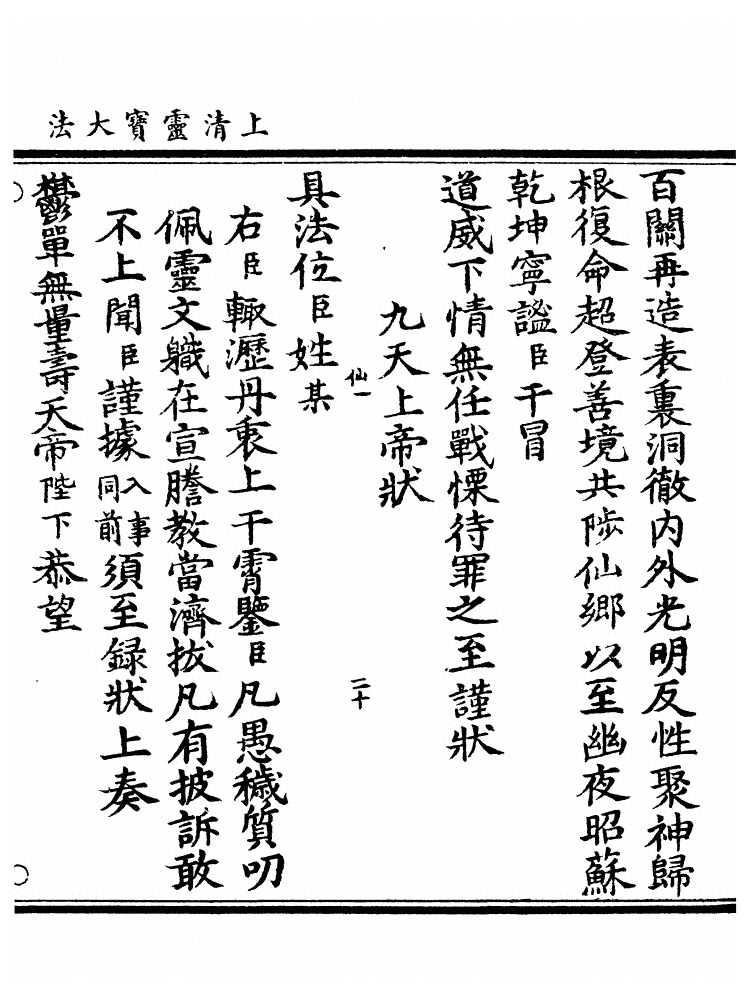 上清靈寶大法
百關再造表裏洞徹内外光明反性聚神歸
根復命超登善境共陟仙鄉以至幽夜昭蘇
乾坤寧謐臣干冒
道威下情無任戰慄待罪之至謹狀
九天上帝狀
仙一
二十
具法位臣姓某
右臣輙瀝丹衷上干霄鑒臣凡愚穢質叨
佩靈文職在宣謄教當濟拔凡有披訴敢
不上聞臣謹據入事同前須至録狀上奏
鬱單無量壽天帝陛下恭望